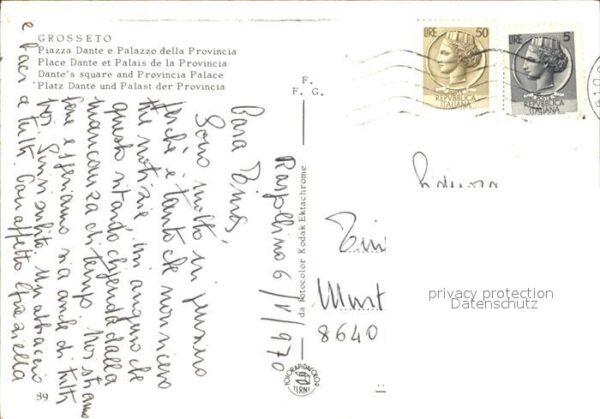 GROSSETO
Piazza Dante e Palazzo della Provincia
Place Dante et Palais de la Provincia
Dante's square and Provincia Palace
Platz Dante und Palast der Provincia
F.
F. G.
LIRE 50
REPVBBLICA
ITALIANA
LIRE 5
REPVBBLICA
ITALIANA
6/V/970
Cara
Sono molto in pensiero
perché è tanto che non ricevo
tue notizie. Mi auguro che
questo ritardo dipenda dalla
mancanza di tempo. Noi stiamo
bene e speriamo sia anche di tutti
voi. Scrivi subito. Un abbraccio
e baci a tutti. Con affetto Graziella
da Fotocolor Kodak Ektachrome
FOTORAPIDACOLOR
TERNI
39
8640
privacy protection
Datenschutz